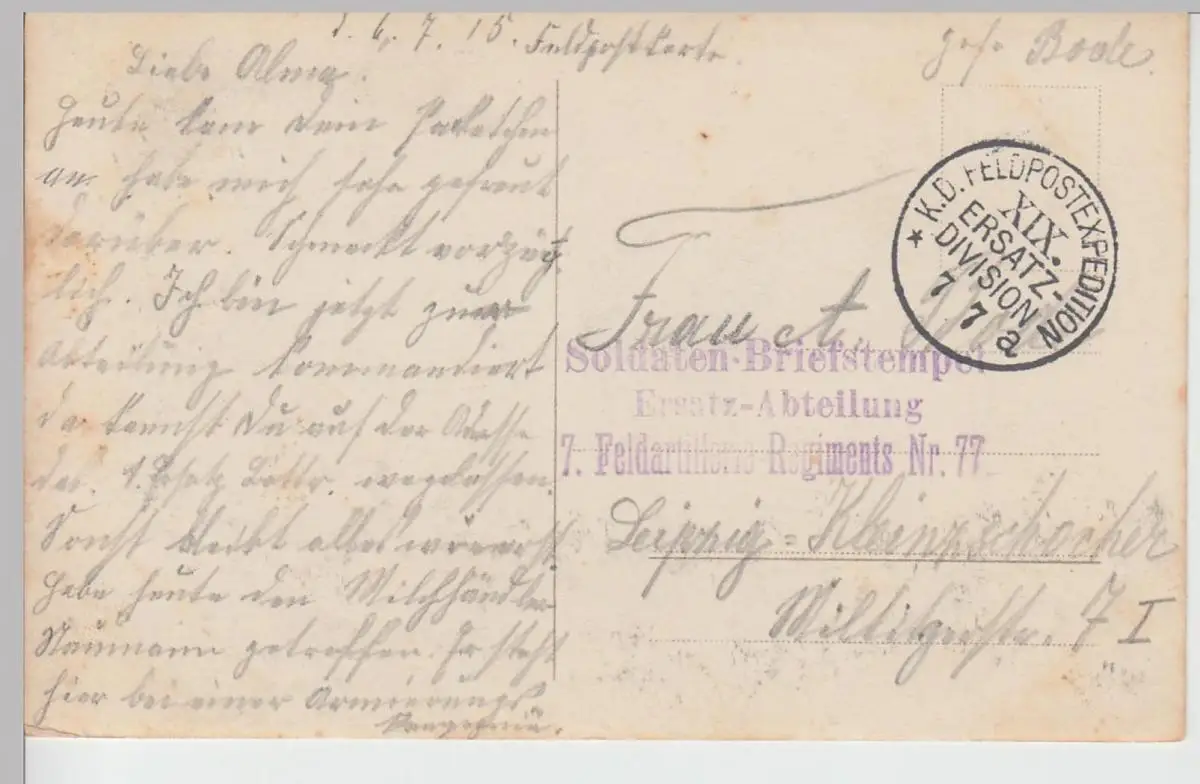 d. 6. 7. 15. Feldpostkarte.
Gefr. Bode.
Liebe Alma.
Heute kam Dein Paketchen
an habe mich sehr gefreut
darüber. Schmeckt vorzüg
lich. Ich bin jetzt zur
Abteilung kommandiert
da kannst Du auf der Adresse
das 1. Ersatz Battr. weglassen.
Sonst bleibt alles
Habe heute den Milchhändler
Naumann getroffen. Er steht
hier bei einer Armierungs
Kompanie.
K.D. FELDPOSTEXPEDITION
XIX.
ERSATZ-
DIVISION
7 7
a
Frau A.
Soldaten-Briefstempel
Ersatz-Abteilung
7. Feldartillerie Regiments Nr. 77
Leipzig=Kleinzschocher
Miltitzerstr. 7 I